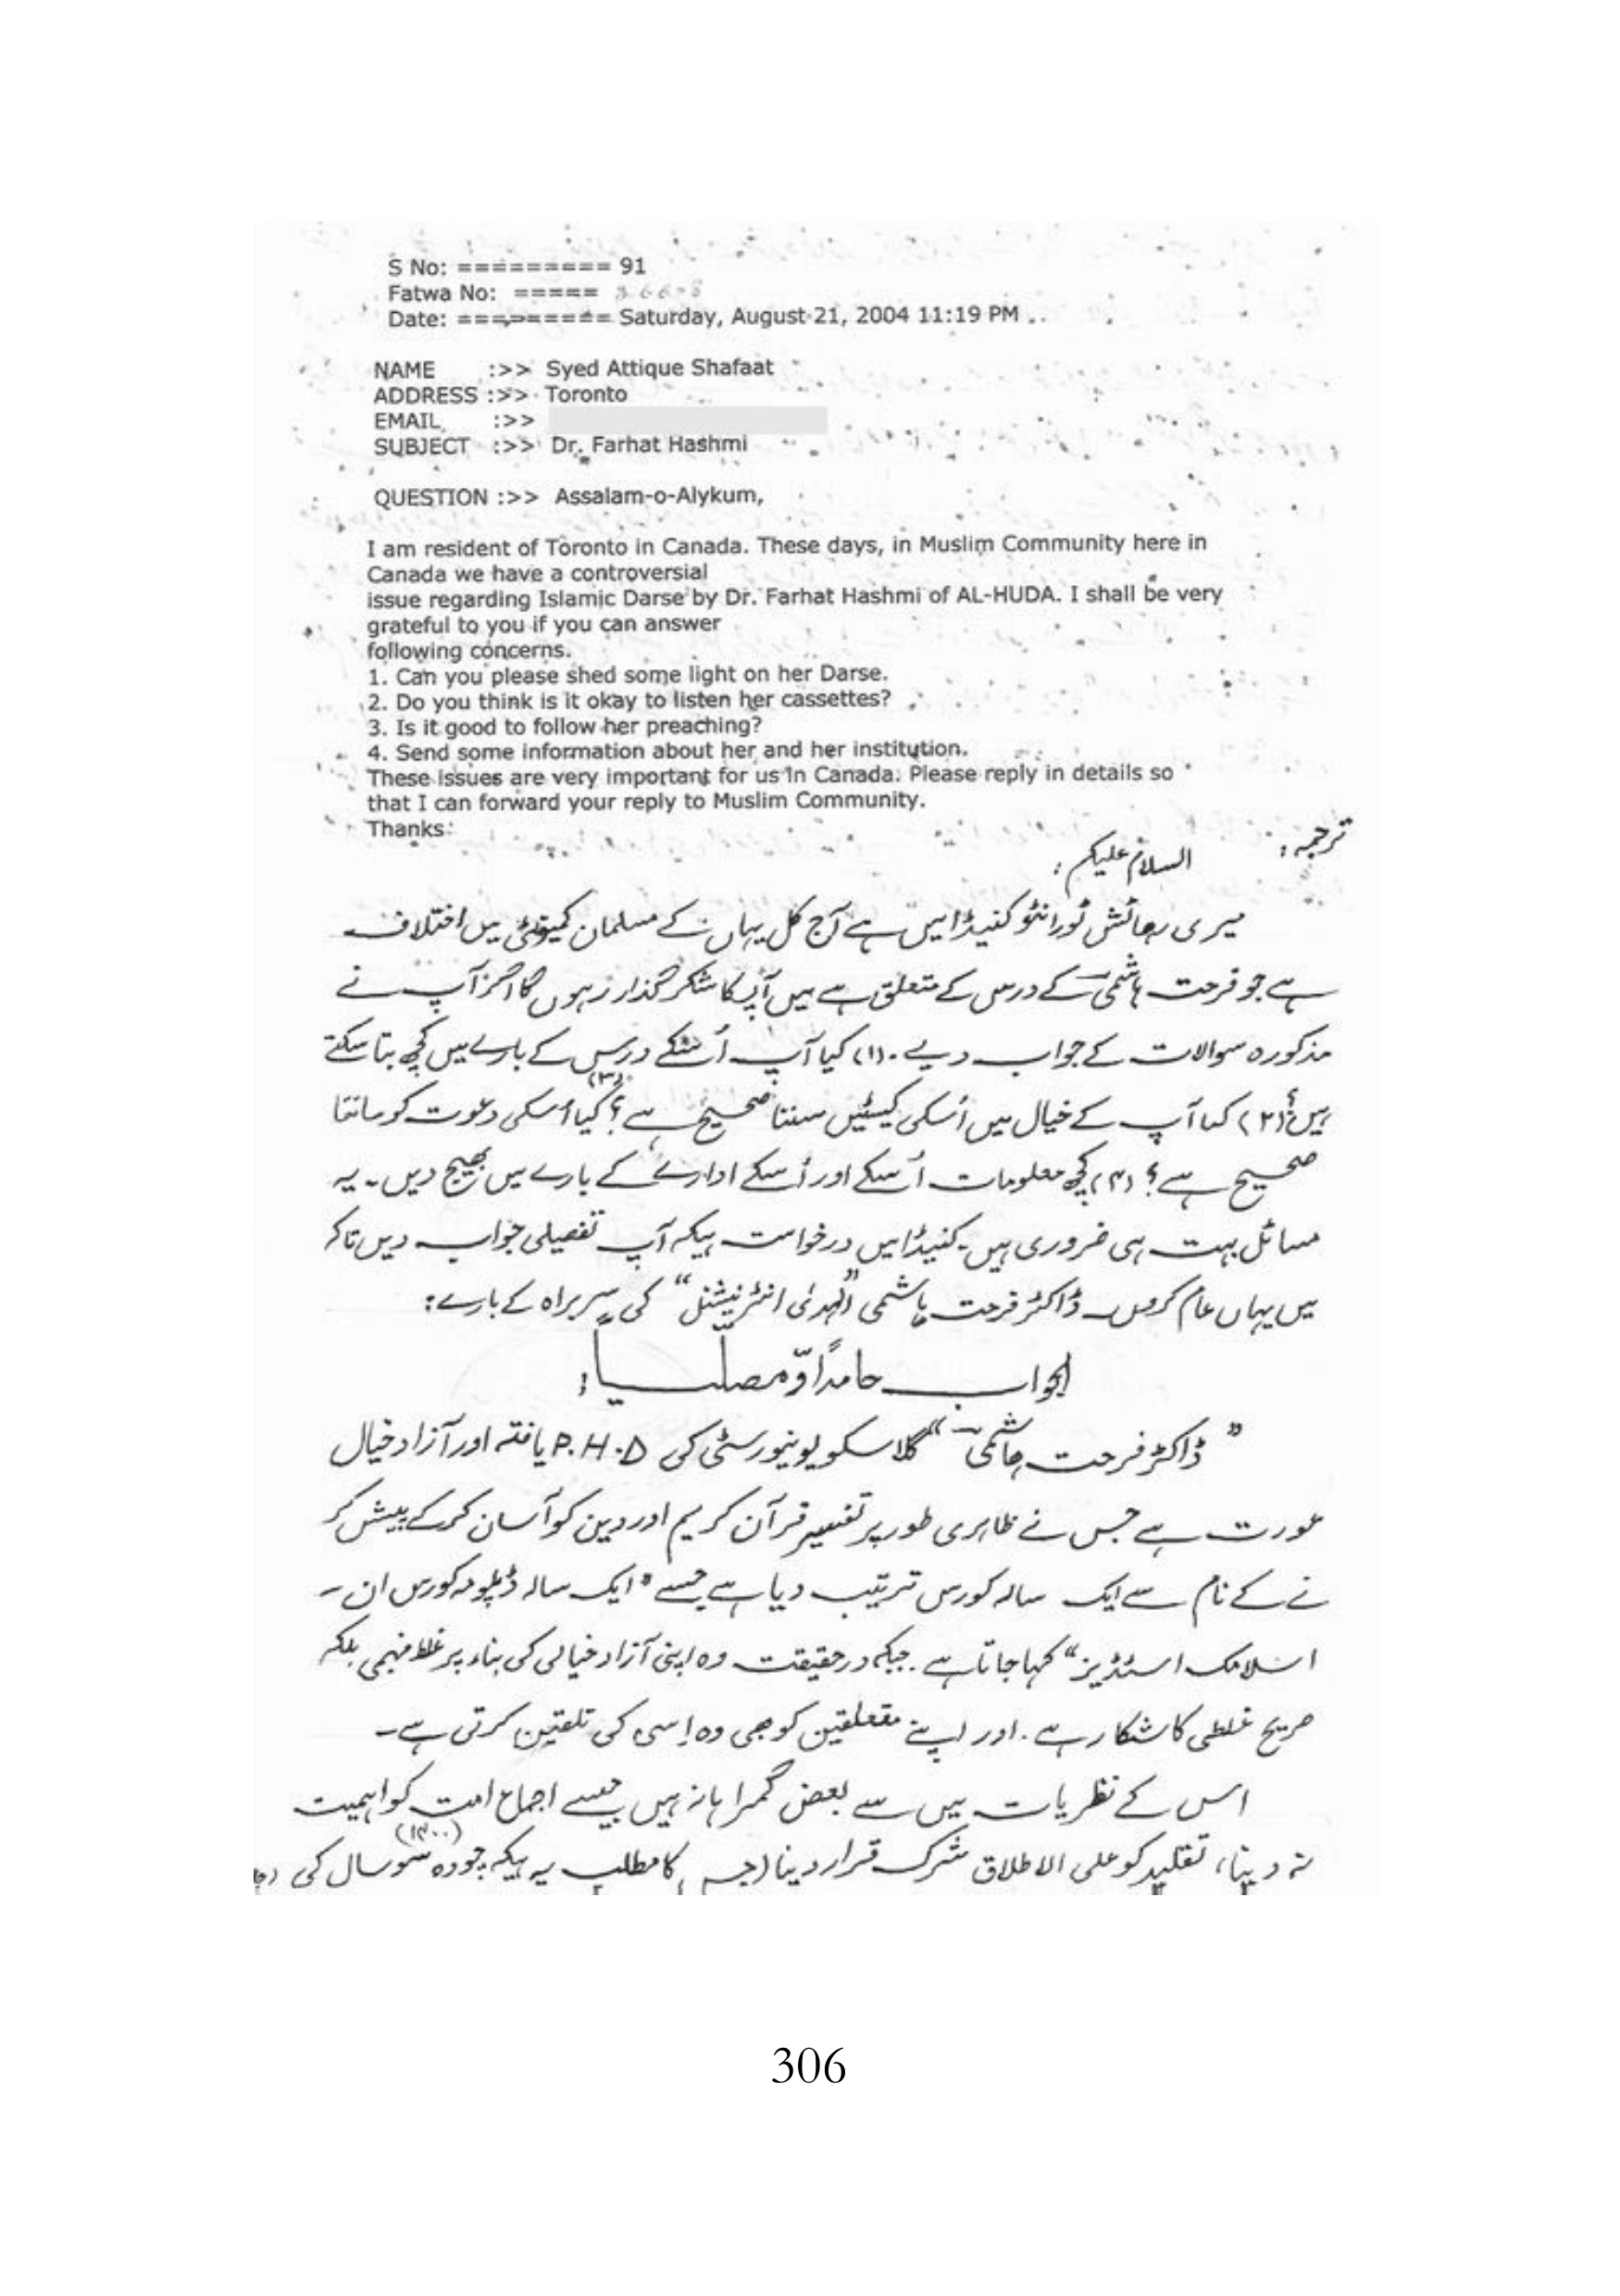 S No: ========= 91
Fatwa No: =====
Date: ========= Saturday, August 21, 2004 11:19 PM ..
NAME :>> Syed Attique Shafaat
ADDRESS :>> Toronto
EMAIL :>>
SUBJECT :>> Dr. Farhat Hashmi
QUESTION :>> Assalam-o-Alykum,
I am resident of Toronto in Canada. These days, in Muslim Community here in
Canada we have a controversial
issue regarding Islamic Darse by Dr. Farhat Hashmi of AL-HUDA. I shall be very
grateful to you if you can answer
following concerns.
1. Can you please shed some light on her Darse.
2. Do you think is it okay to listen her cassettes?
3. Is it good to follow her preaching?
4. Send some information about her and her institution.
These issues are very important for us in Canada. Please reply in details so
that I can forward your reply to Muslim Community.
Thanks
ترجمہ:
السلام علیکم:
میری رہائش ٹورانٹو کنیڈا میں ہے آج کل یہاں کے مسلمان کمیونٹی میں اختلاف
ہے جو فرحت ہاشمی کے درس کے متعلق ہے میں آپ کا شکر گذار رہوں گا اگر آپ نے
مذکورہ سوالات کے جواب دیے۔ (۱) کیا آپ اُسکے درس کے بارے میں کچھ بتا سکتے
ہیں؟ (۲) کیا آپ کے خیال میں اُسکی کیسٹیں سننا صحیح ہے؟ (۳) کیا اُسکی دعوت کو ماننا
صحیح ہے؟ (۴) کچھ معلومات اُسکے اور اُسکے ادارے کے بارے میں بھیج دیں۔ یہ
مسائل بہت ہی ضروری ہیں۔ کنیڈا میں درخواست ہیکہ آپ تفصیلی جواب دیں تاکہ
میں یہاں عام کروں۔ ڈاکٹر فرحت ہاشمی "الہدیٰ انٹرنیشنل" کی سربراہ کے بارے:
الجواب حامدًا وّمصلّیا:
"ڈاکٹر فرحت ہاشمی" گلاسکو یونیورسٹی کی P.H.D یافتہ اور آزاد خیال
عورت ہے جس نے ظاہری طور پر تفسیر قرآن کریم اور دین کو آسان کرکے پیش کر
نے کے نام سے ایک سالہ کورس ترتیب دیا ہے جسے "ایک سالہ ڈپلومہ کورس ان۔
اسلامک اسٹڈیز" کہا جاتا ہے۔ جبکہ درحقیقت وہ اپنی آزاد خیالی کی بناء پر غلط فہمی بلکہ
صریح غلطی کا شکار ہے۔ اور اپنے متعلقین کو بھی وہ اِسی کی تلقین کرتی ہے۔
اس کے نظریات میں سے بعض گمراہانہ ہیں جیسے اجماع امت کو اہمیت
نہ دینا، تقلید کو علی الاطلاق شرک قرار دینا (جس کا مطلب یہ ہیکہ چودہ سو (۱۴۰۰) سال کی
306